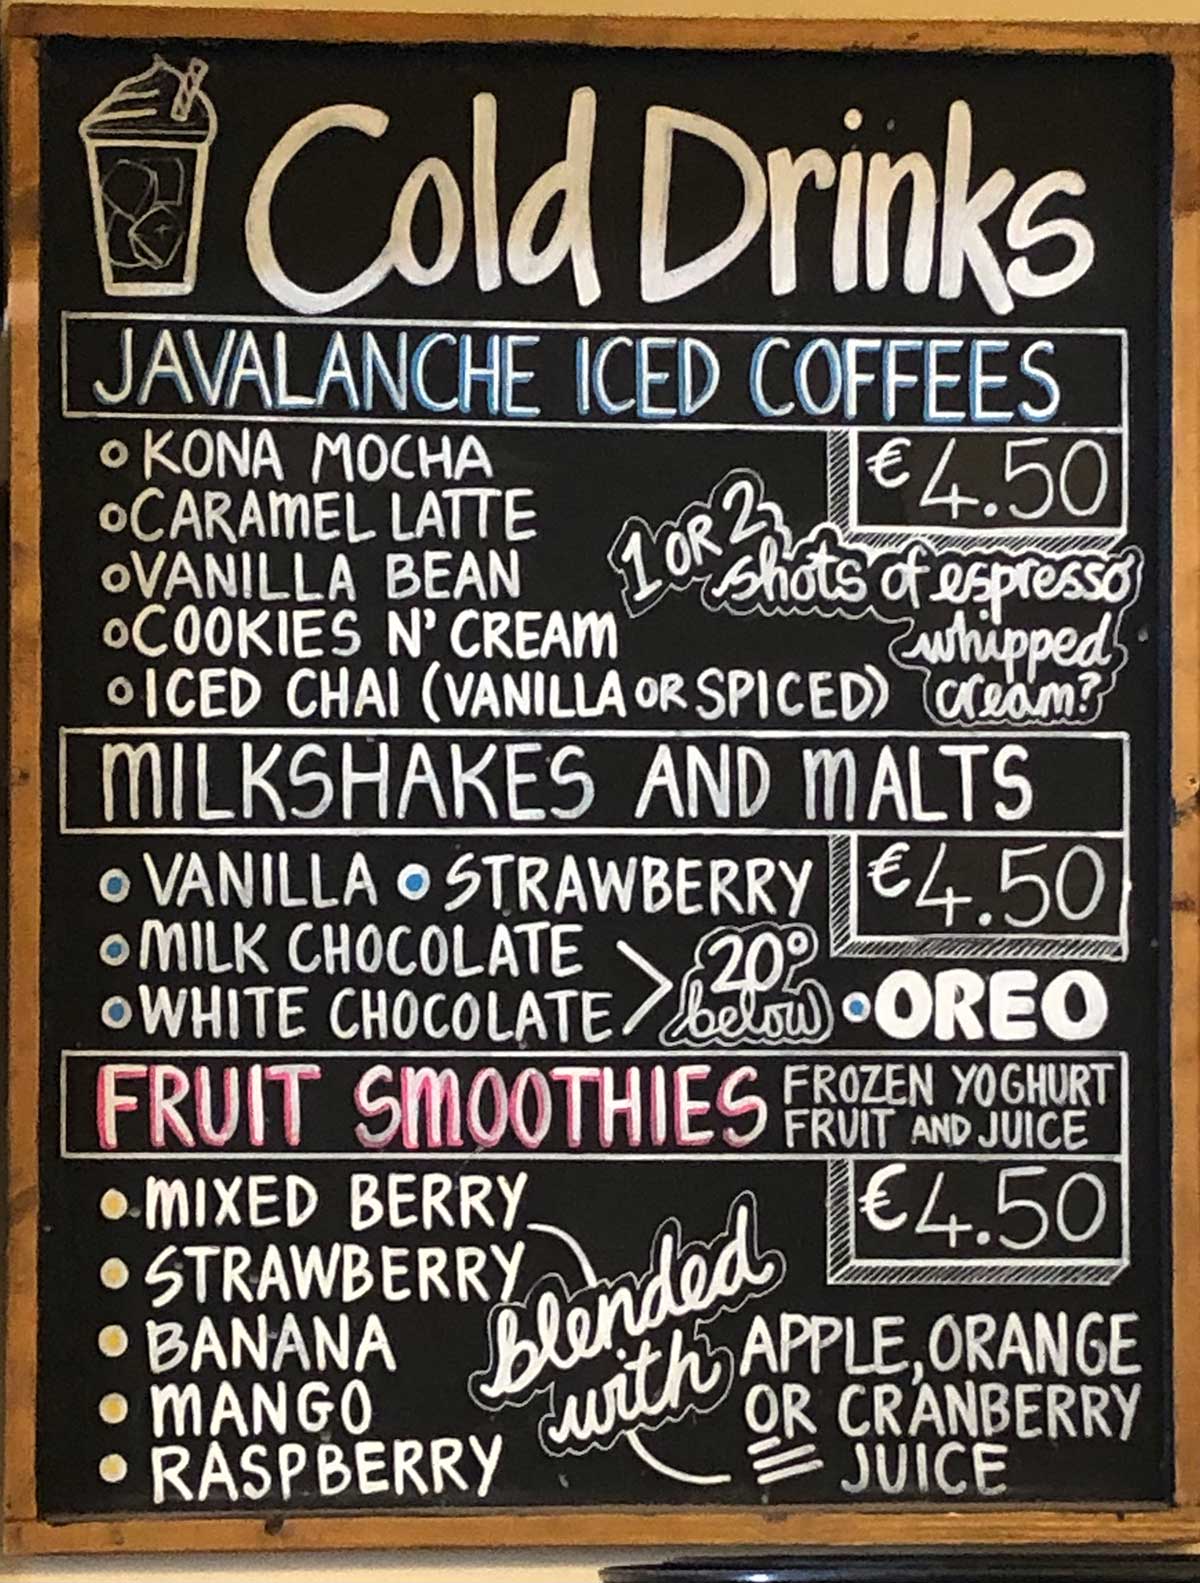 Cold Drinks
JAVALANCHE ICED COFFEES
€4.50
KONA MOCHA
CARAMEL LATTE
VANILLA BEAN
COOKIES N' CREAM
ICED CHAI (VANILLA OR SPICED)
1 OR 2
shots of espresso
whipped
cream?
MILKSHAKES AND MALTS
€4.50
VANILLA • STRAWBERRY
MILK CHOCOLATE
WHITE CHOCOLATE
20°
below
• OREO
FRUIT SMOOTHIES
FROZEN YOGHURT
FRUIT AND JUICE
€4.50
MIXED BERRY
STRAWBERRY
BANANA
MANGO
RASPBERRY
blended
with
APPLE, ORANGE
OR CRANBERRY
JUICE